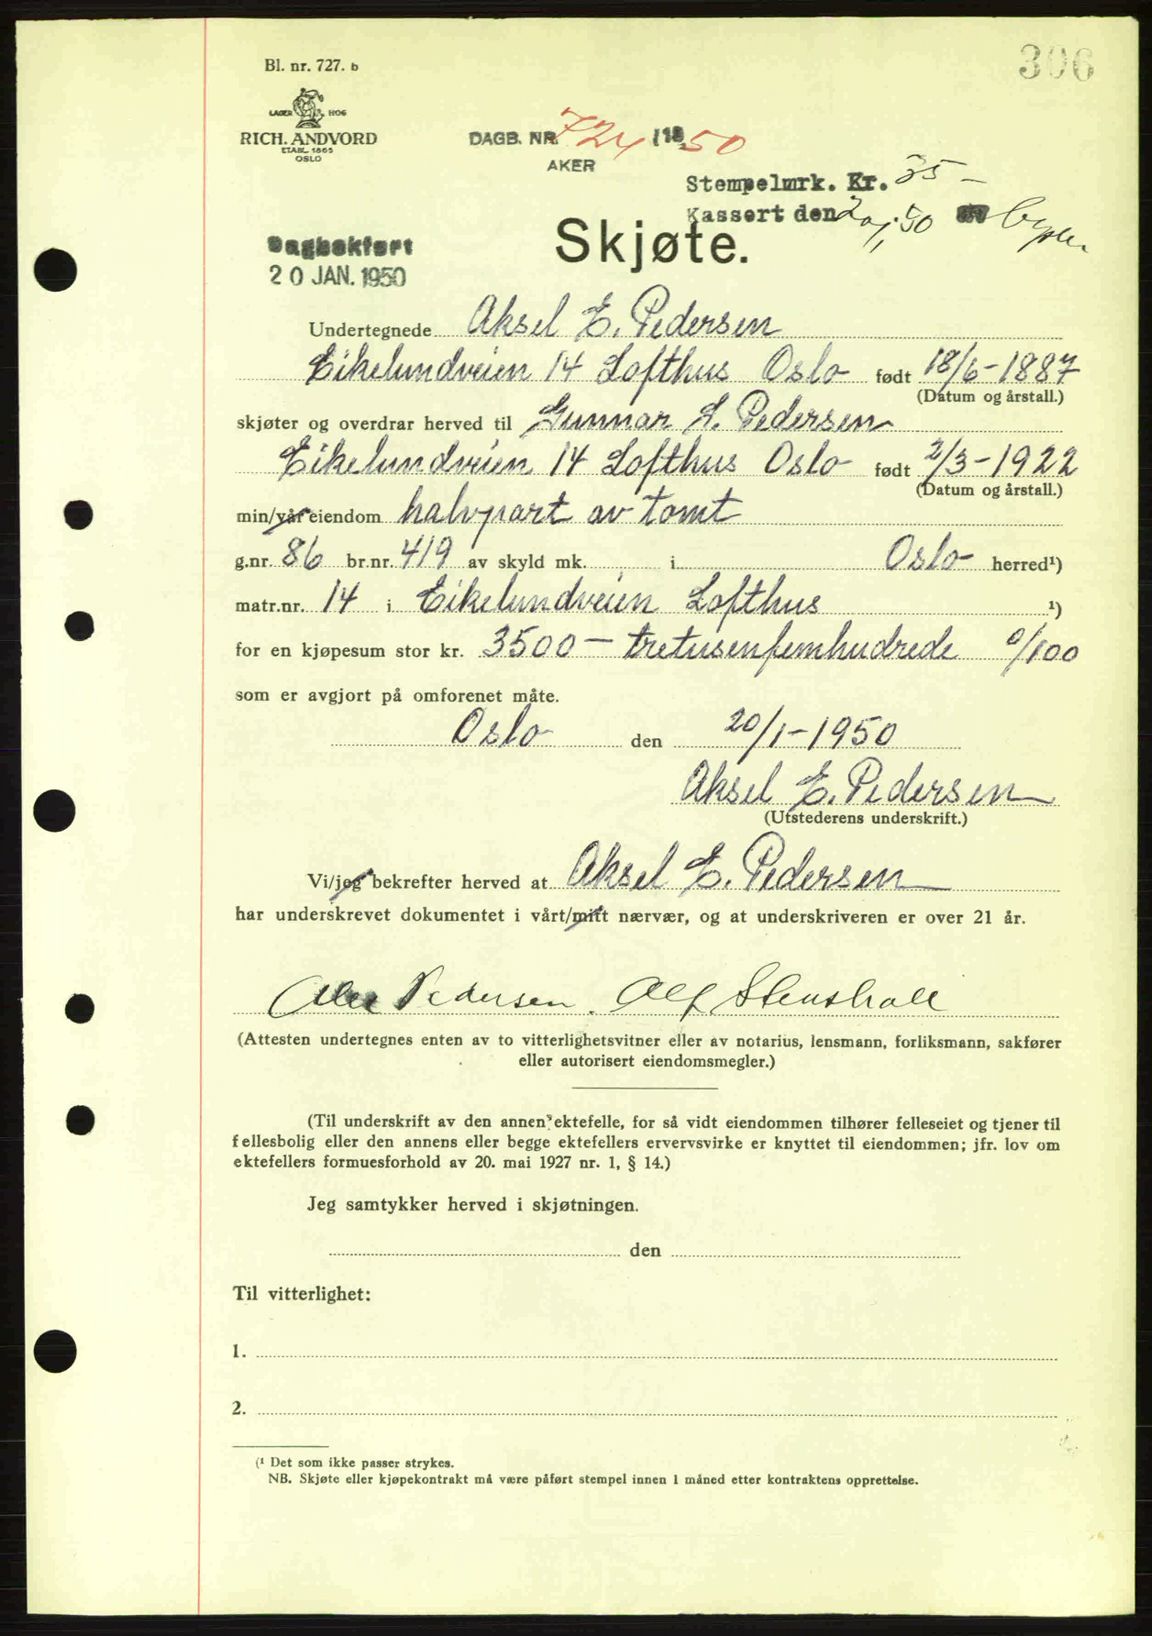 306
Bl. nr. 727. b
LAGER HOG
RICH. ANDVORD
ETABL. 1865
OSLO
DAGB. NR. 724 /1950
AKER
Stempelmrk. Kr. 35 -
Kassert den 20/1.50
Skjøte.
Dagbokført
20 JAN. 1950
Undertegnede Aksel E. Pedersen
Eikelundveien 14 Lofthus Oslo født 18/6-1887
(Datum og årstall.)
skjøter og overdrar herved til Gunnar L. Pedersen
Eikelundveien 14 Lofthus Oslo født 2/3-1922
(Datum og årstall.)
min/vår eiendom halvpart av tomt
g.nr. 86 br.nr. 419 av skyld mk. i Oslo herred¹)
matr.nr. 14 i Eikelundveien Lofthus ¹)
for en kjøpesum stor kr. 3500 — tretusenfemhudrede 0/100
som er avgjort på omforenet måte.
Oslo den 20/1-1950
Aksel E. Pedersen
(Utstederens underskrift.)
Vi/jeg bekrefter herved at Aksel E. Pedersen
har underskrevet dokumentet i vårt/mitt nærvær, og at underskriveren er over 21 år.
Pedersen. Alf Stenshall
(Attesten undertegnes enten av to vitterlighetsvitner eller av notarius, lensmann, forliksmann, sakfører
eller autorisert eiendomsmegler.)
(Til underskrift av den annen ektefelle, for så vidt eiendommen tilhører felleseiet og tjener til
fellesbolig eller den annens eller begge ektefellers ervervsvirke er knyttet til eiendommen; jfr. lov om
ektefellers formuesforhold av 20. mai 1927 nr. 1, § 14.)
Jeg samtykker herved i skjøtningen.
den
Til vitterlighet:
1.
2.
(¹ Det som ikke passer strykes.
NB. Skjøte eller kjøpekontrakt må være påført stempel innen 1 måned etter kontraktens opprettelse.